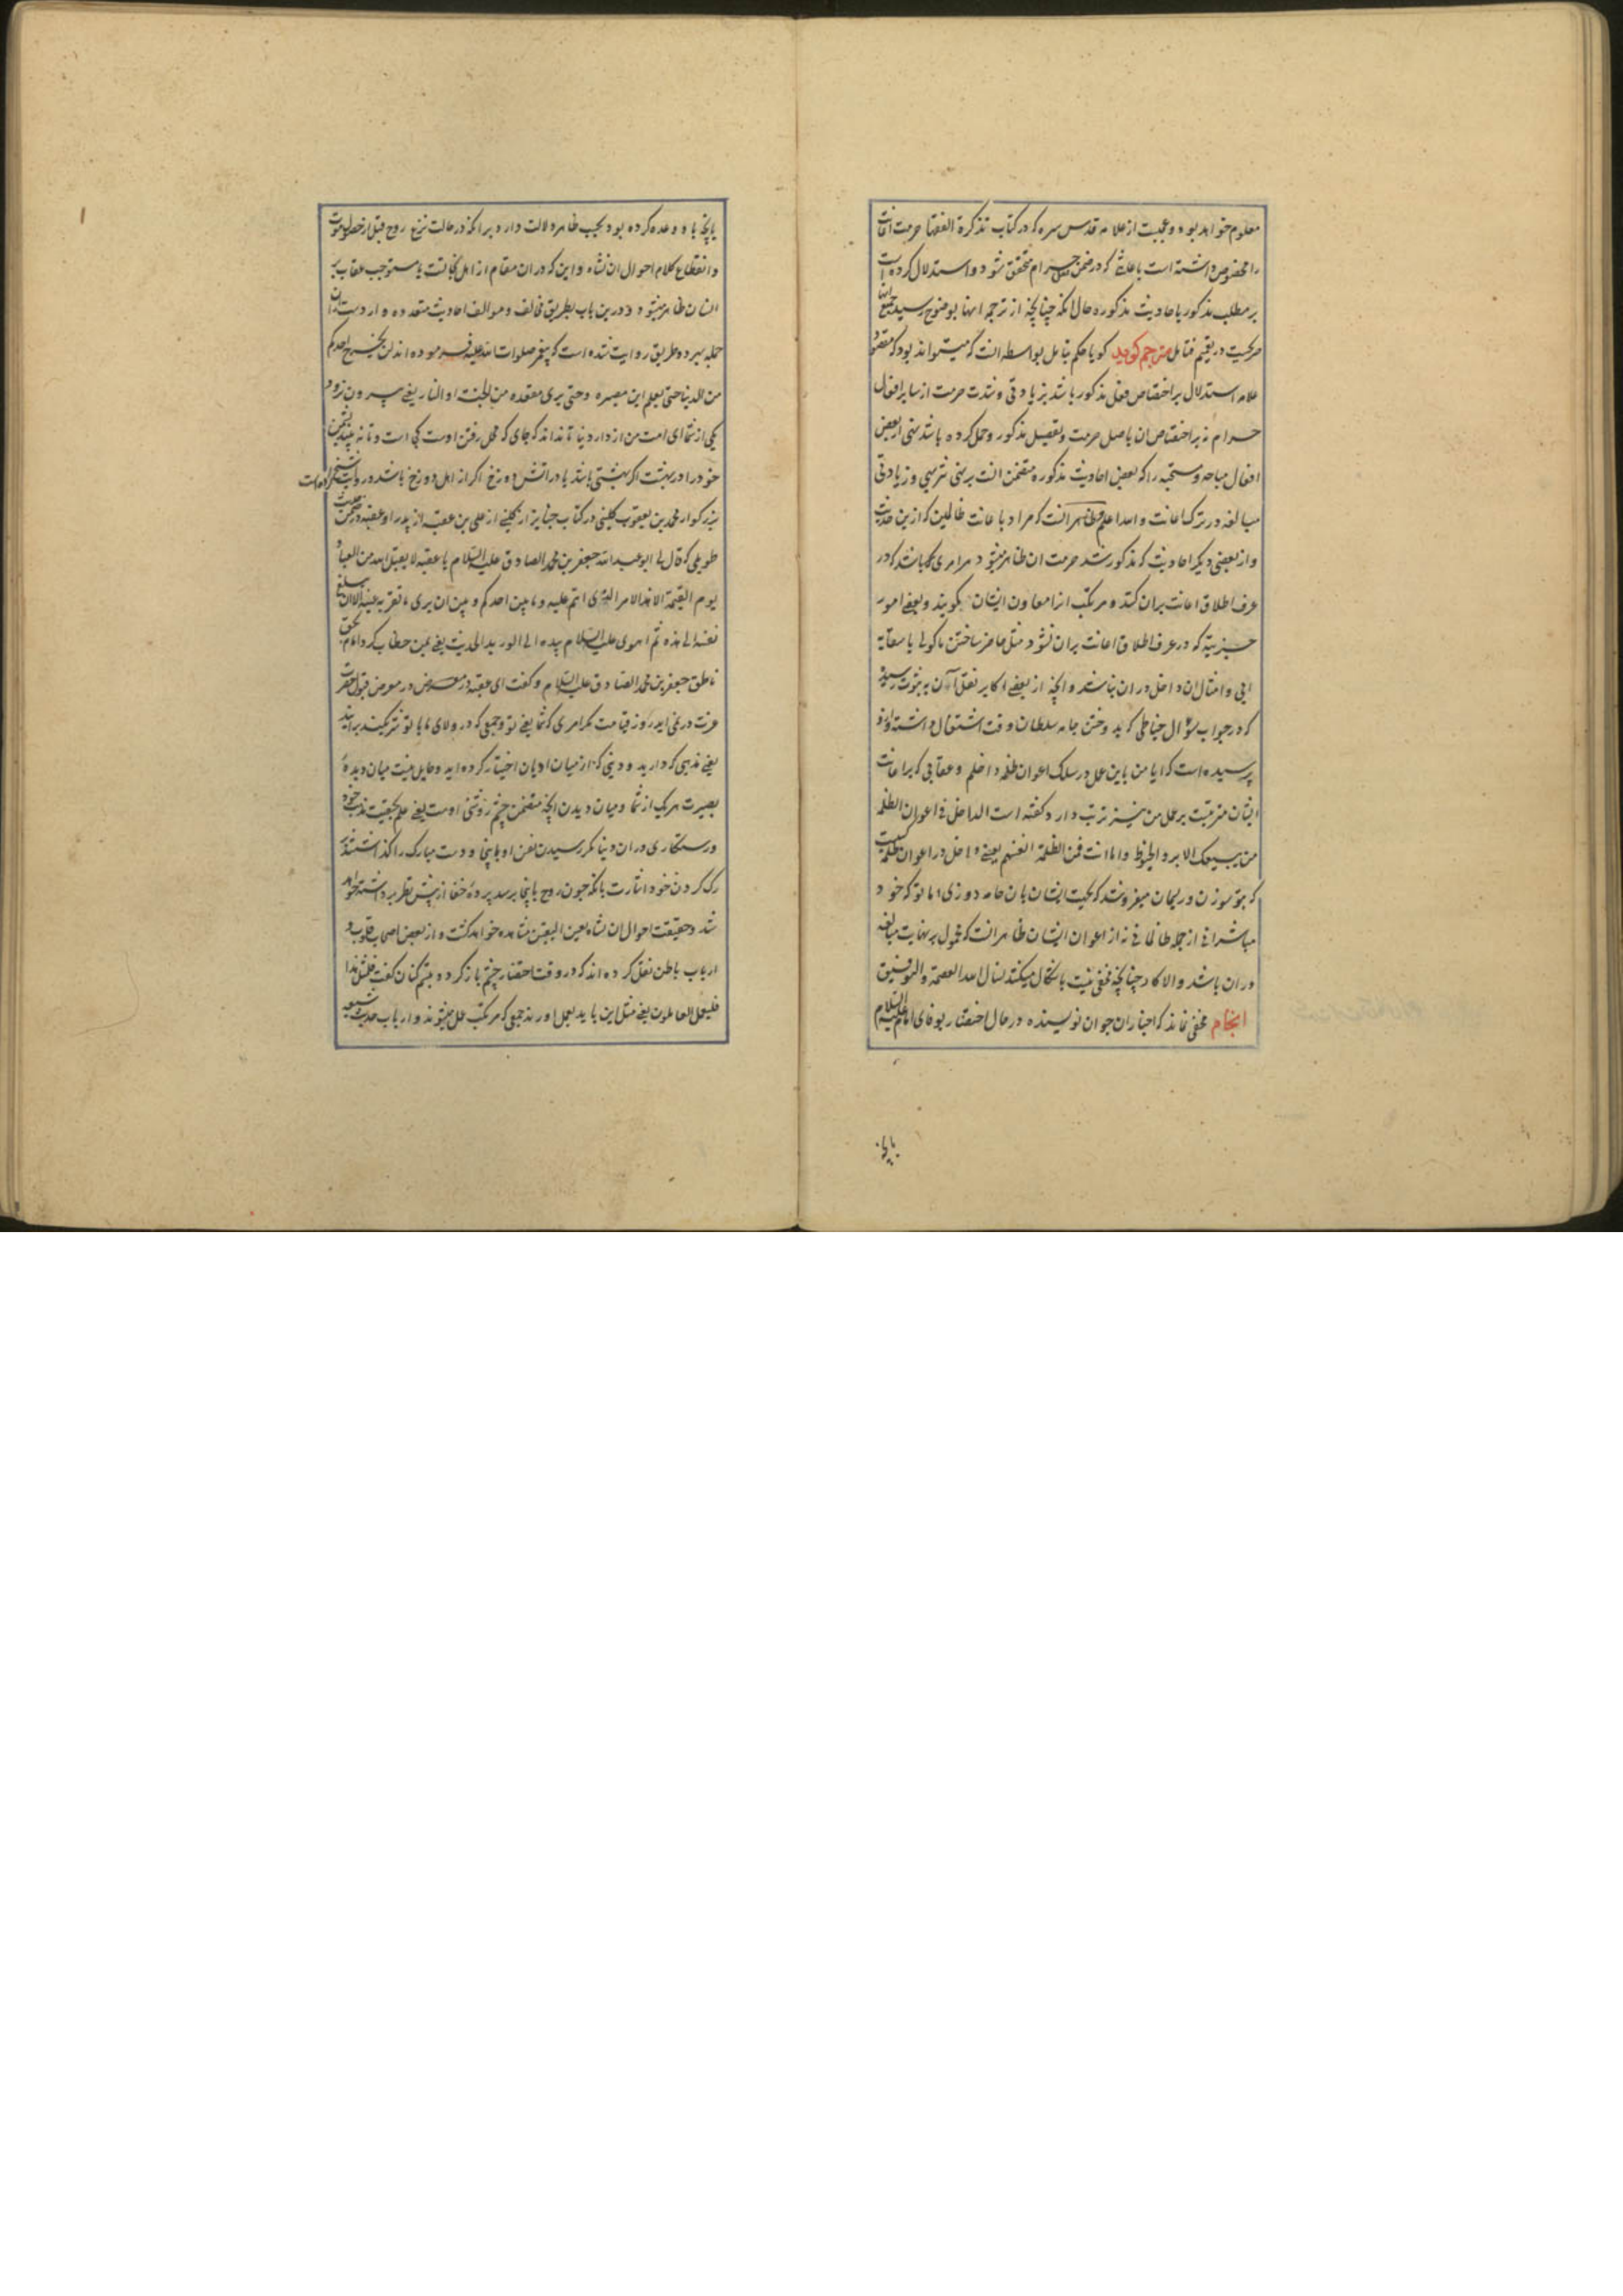 معلوم خواهد بود و عجبست از علامه قدس سره که در کتاب تذکرة الفقها حرمت اعانت
را مخصوص داشته است باعانتی که در ضمن حرام متحقق شود و استدلال کرده است
بر مطلب مذکور باحادیث مذکوره حال آنکه چنانچه از ترجمه آنها بوضوح رسید جمیع آنها
صریحست در تعمیم فتامل مترجم کوید کویا حکم بتامل بواسطه آنست که میتواند بود که مقصود
علامه استدلال بر اختصاص فعل مذکور باشد بزیادتی و شدت حرمت از سایر افعال
حرام نه بر اختصاص آن باصل حرمت و تفصیل مذکور و حمل کرده باشد نهی از بعض
افعال مباحه و مستحبه را که بعض احادیث مذکوره متضمن آنست بر نهی تنزیهی و زیادتی
مبالغه در ترک اعانت و الله اعلم و ظاهر آنست که مراد باعانت ظالمین که از این حدیث
و از بعضی دیگر احادیث که مذکور شد حرمت آن ظاهر میشود هر امری که باشد که در
عرف اطلاق اعانت بر آن کنند و مرتکب آنرا معاون ایشان کویند و بعضی امور
جزییه که در عرف اطلاق اعانت بر آن نشود مثل حاضر ساختن ماکولی یا سقایه
آبی و امثال آن داخل در آن نباشد و آنچه از بعضی اکابر نقل آن به ثبوت رسیده
که در جواب سؤال خیاطی که بدوختن جامه سلطان وقت اشتغال داشته و ازو
پرسیده است که آیا من باین عمل در سلک اعوان ظلمه داخلم و عقابی که بر اعانت
ایشان مترتبست بر عمل من نیز ترتب دارد کفته است الداخل فی اعوان الظلمه
من یبیعک الابر و الخیوط و اما انت فمن الظلمة انفسهم یعنی داخل در اعوان ظلمه کسیست
که بتو سوزن و ریسمان میفروشد که بجهت ایشان بآن جامه دوزی اما تو که خود
مباشرانی از جمله ظالمانی نه از اعوان ایشان ظاهر آنست که محمول بر نهایت مبالغه
در آن باشد و الا کار چنانچه مخفی نیست باشکال میکشد نسال الله العصمة و التوفیق
انجام مخفی نماند که اخبار آن جوان نویسنده در حال احتضار بوفای امام علیه السلام
بآنچه
بآنچه باو وعده کرده بود بحسب ظاهر دلالت دارد بر آنکه در حالت نزع روح قبل از حصول موت
و انقطاع کلام احوال آن نشاه و این که در آن مقام از اهل نجاتست یا مستوجب عقاب بر
انسان ظاهر میشود و درین باب بطریق مخالف و موالف احادیث متعدده وارد است از آن
جمله بهر دو طریق روایت شده است که پیغمبر صلوات الله علیه فرموده اند لن یخرج احدکم
من الدنیا حتی یعلم این مصیره و حتی یری مقعده من الجنة او النار یعنی بیرون نرود
یکی از شما ای امت من از دار دنیا تا نداند که جای که محل رفتن اوست کجاست و تا نه بیند نشیمن
خود را در بهشت اگر بهشتی باشد یا در آتش دوزخ اگر از اهل دوزخ باشد و روایت
بزرکوار محمد بن یعقوب کلینی در کتاب جنایز از کلینی از علی بن عقبه از پدر او عقبه در ضمن حدیث
طویلی که قال لی ابو عبد الله جعفر بن محمد الصادق علیه السلام یا عقبة لا یقبل الله من العباد
یوم القیمة الا هذا الامر الذی انتم علیه و ما بین احدکم و بین ان یری ما تقر به عینه الا ان یبلغ
نفسه الی هذه ثم اهوی علیه السلام بیده الی الورید الحدیث یعنی بمن خطاب کرد امام بحق
ناطق جعفر بن محمد الصادق علیه السلام و کفت ای عقبه در معرض قبول حضرت
عزت در نمی آید روز قیامت مکر امری که شما یعنی تو و جمعی که در ولای ما با تو شریکند بر آنید
یعنی مذهبی که دارید و دینی که از میان ادیان اختیار کرده اید و حایل نیست میان دیده
بصیرت هر یک از شما و میان دیدن آنچه متضمن چشم روشنی اوست یعنی علم بحقیت مذهب خود
و رستکاری در آن دنیا مکر رسیدن نفس او باینجا و دست مبارک را کذاشتند بر
رک کردن خود اشارت بآنکه چون روح باینجا برسد پرده خفا از پیش نظر برداشته خواهد
شد و حقیقت احوال آن نشاه بعین الیقین مشاهده خواهد کشت و از بعض اصحاب قلوب و
ارباب باطن نقل کرده اند که در وقت احتضار چشم باز کرد و تبسم کنان کفت لمثل هذا
فلیعمل العاملون یعنی مثل این باید بعمل آورند جمعی که مرتکب عمل میشوند و ارباب حدیث شیعه